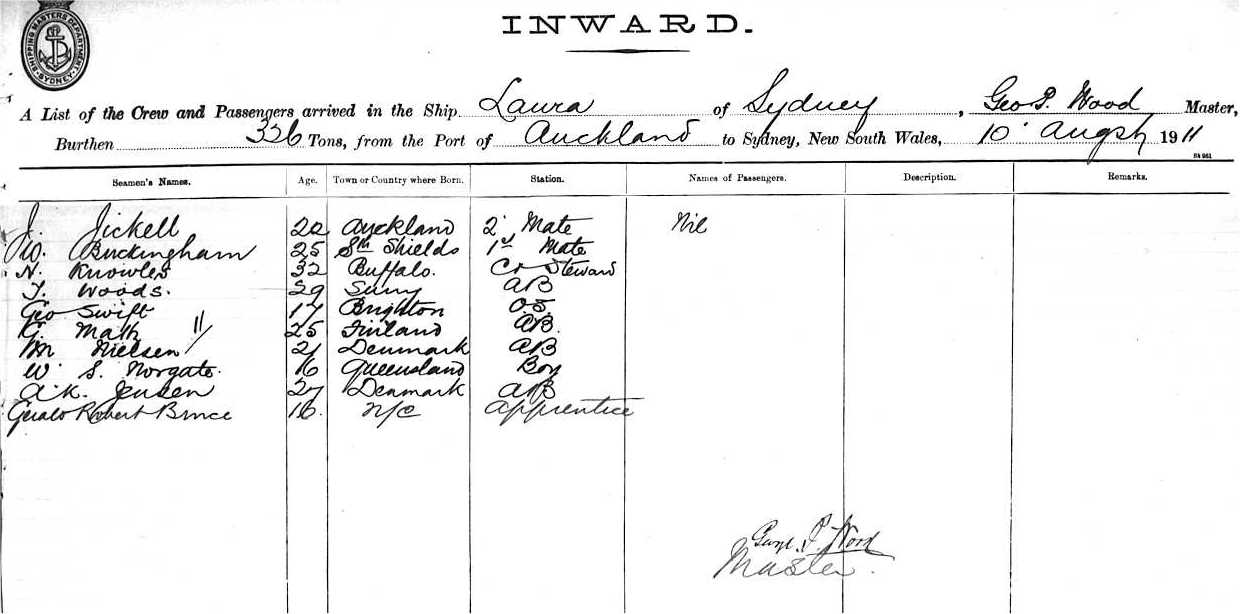 SHIPPING MASTERS DEPARTMENT. SYDNEY
INWARD.
A List of the Crew and Passengers arrived in the Ship Laura of Sydney, Geo P. Wood Master,
Burthen 336 Tons, from the Port of Auckland to Sydney, New South Wales, 10 Augst 1911
Seamen's Names. Age. Town or Country where Born. Station. Names of Passengers. Description. Remarks.
J. Jickell Auckland 2 Mate Nil
W. Buckingham 25 Sth Shields 1st Mate
N. Knowles 32 Buffalo. Steward
T. Woods. 29 AB
Geo Swift 17 Brighton O.S.
25 Finland AB.
Nielsen 21 Denmark AB
W. S. Norgate. 16 Queensland Boy
A.K. Jensen 27 Denmark AB
Gerald Robert Bruce 16. Apprentice
P. Wood
Master.